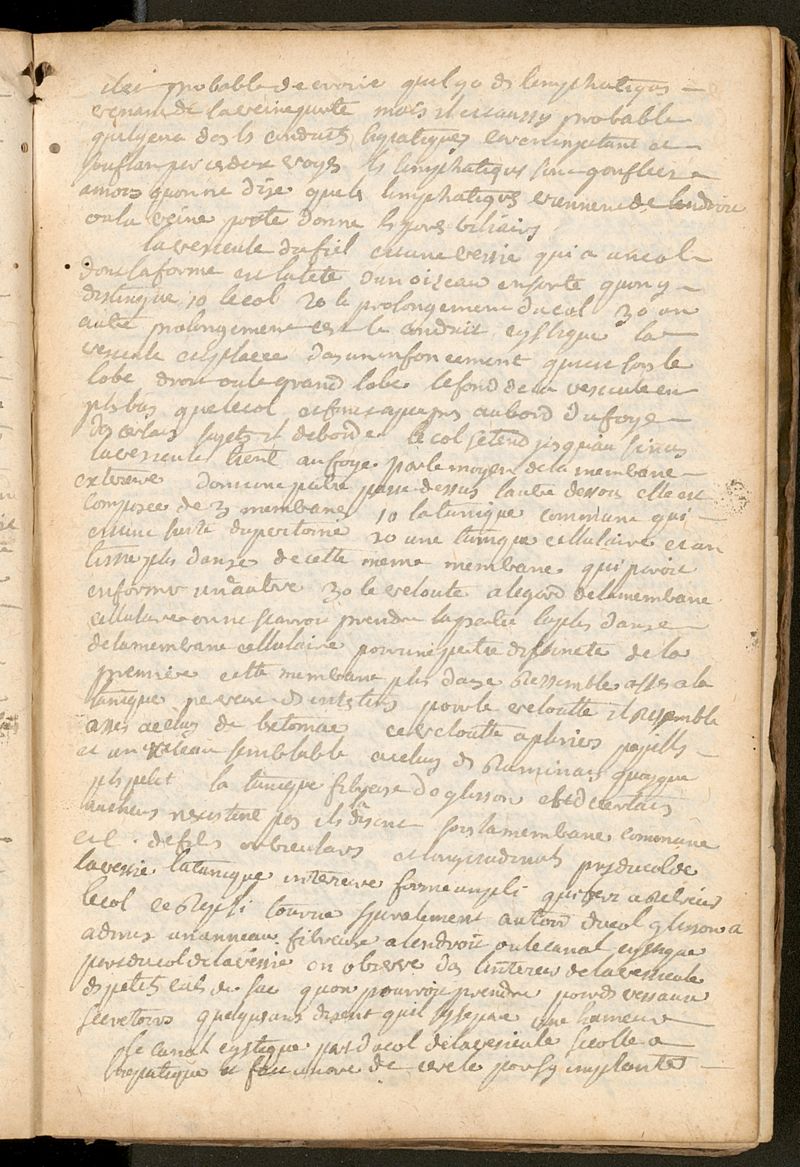 il est probable de croire quil y a ds lemphatiques
venant de la veine porte mais il est aussy probable
quil y en a des ds conduits hepatiques car en injectant et
souflan par ces deux voyes ls limphatiques sont gonflees a
amoins quon ne dise quels limphatiques viennent de lendroit
ou la veine porte donne ls pores biliairs
la vesicule du fiel est une vessie qui a un col
dont la forme est la tete dun oiseau en sorte quon y
distingue 10 le col 20 le prolongement du col 30 un
autre prolongement cest le conduit cystique la
vesicule est placee das un enfoncement qui est sous le
lobe droit ou le grand lobe le fond de la vesicule en
pls bas que le col au bord du foye
ds certais sujets il deborde le col setend jusquau sinus
la vesicule tient au foye par le moyen de la membrane
externe dont une partie passe dessus lautre dessou elle est
composee de 3 membrane 10 la tunique commune qui
est une suite du peritoine 20 une tunique cellulaire et un
tissu pls danse de cette meme membrane qui paroit
en former un autre 30 le veloute a legard de la membrane
cellulaire on ne scauroit prendre la partie la pls danse
de la membrane cellulaire pour une partie distincte de la
premiere cette membrane pls danse ressemble asses a la
tunique ds intestins pour le veloutte il ressemble
asses a celuy de lestomac ce veloutte a plusiers papills
et un reseau semblable a celuy ds ruminans quoyque
pls petit la tunique fibreuse de glisson et de certais
autheurs nexistent pas ils disent sous la membrane commune
de fibres orbiculairs et longitudinals prs du col de
la vessie la tunique interieure forme un pli qui
le col ce repli tourne spiralement autour du col glisson a
admis un anneau fibreuse a lendroit ou le canal cystique
prs du col de la vessie on observe das linterieur de la vesicule
ds petits culs de sac quon pourroit prendre pour ds vessaux
secretoirs quelquuns disent quil se separe une humeur
le canal cystique prs du col de la vesicule secolle a
hepatique et fait un arc de cercle pour sy implanter